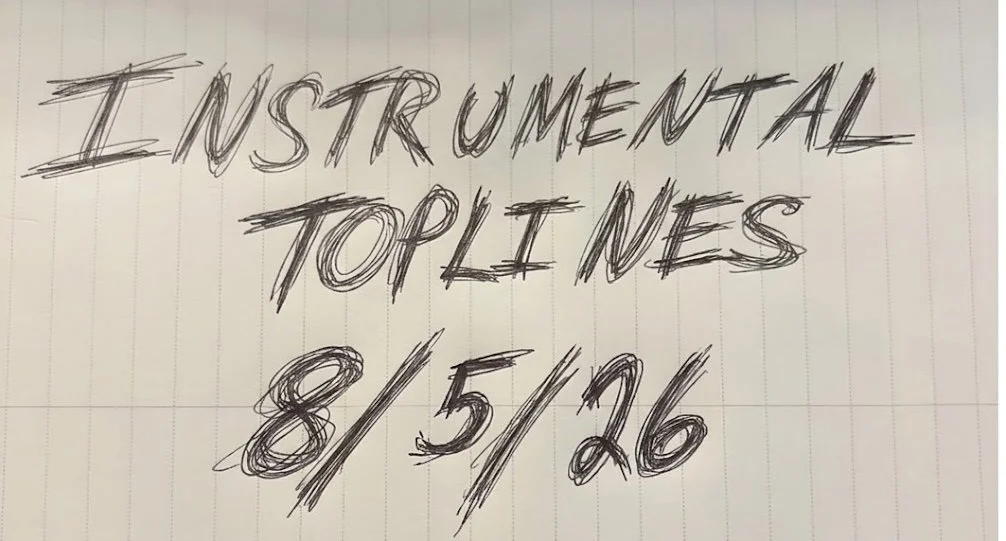 INSTRUMENTAL
TOPLINES
8/5/26